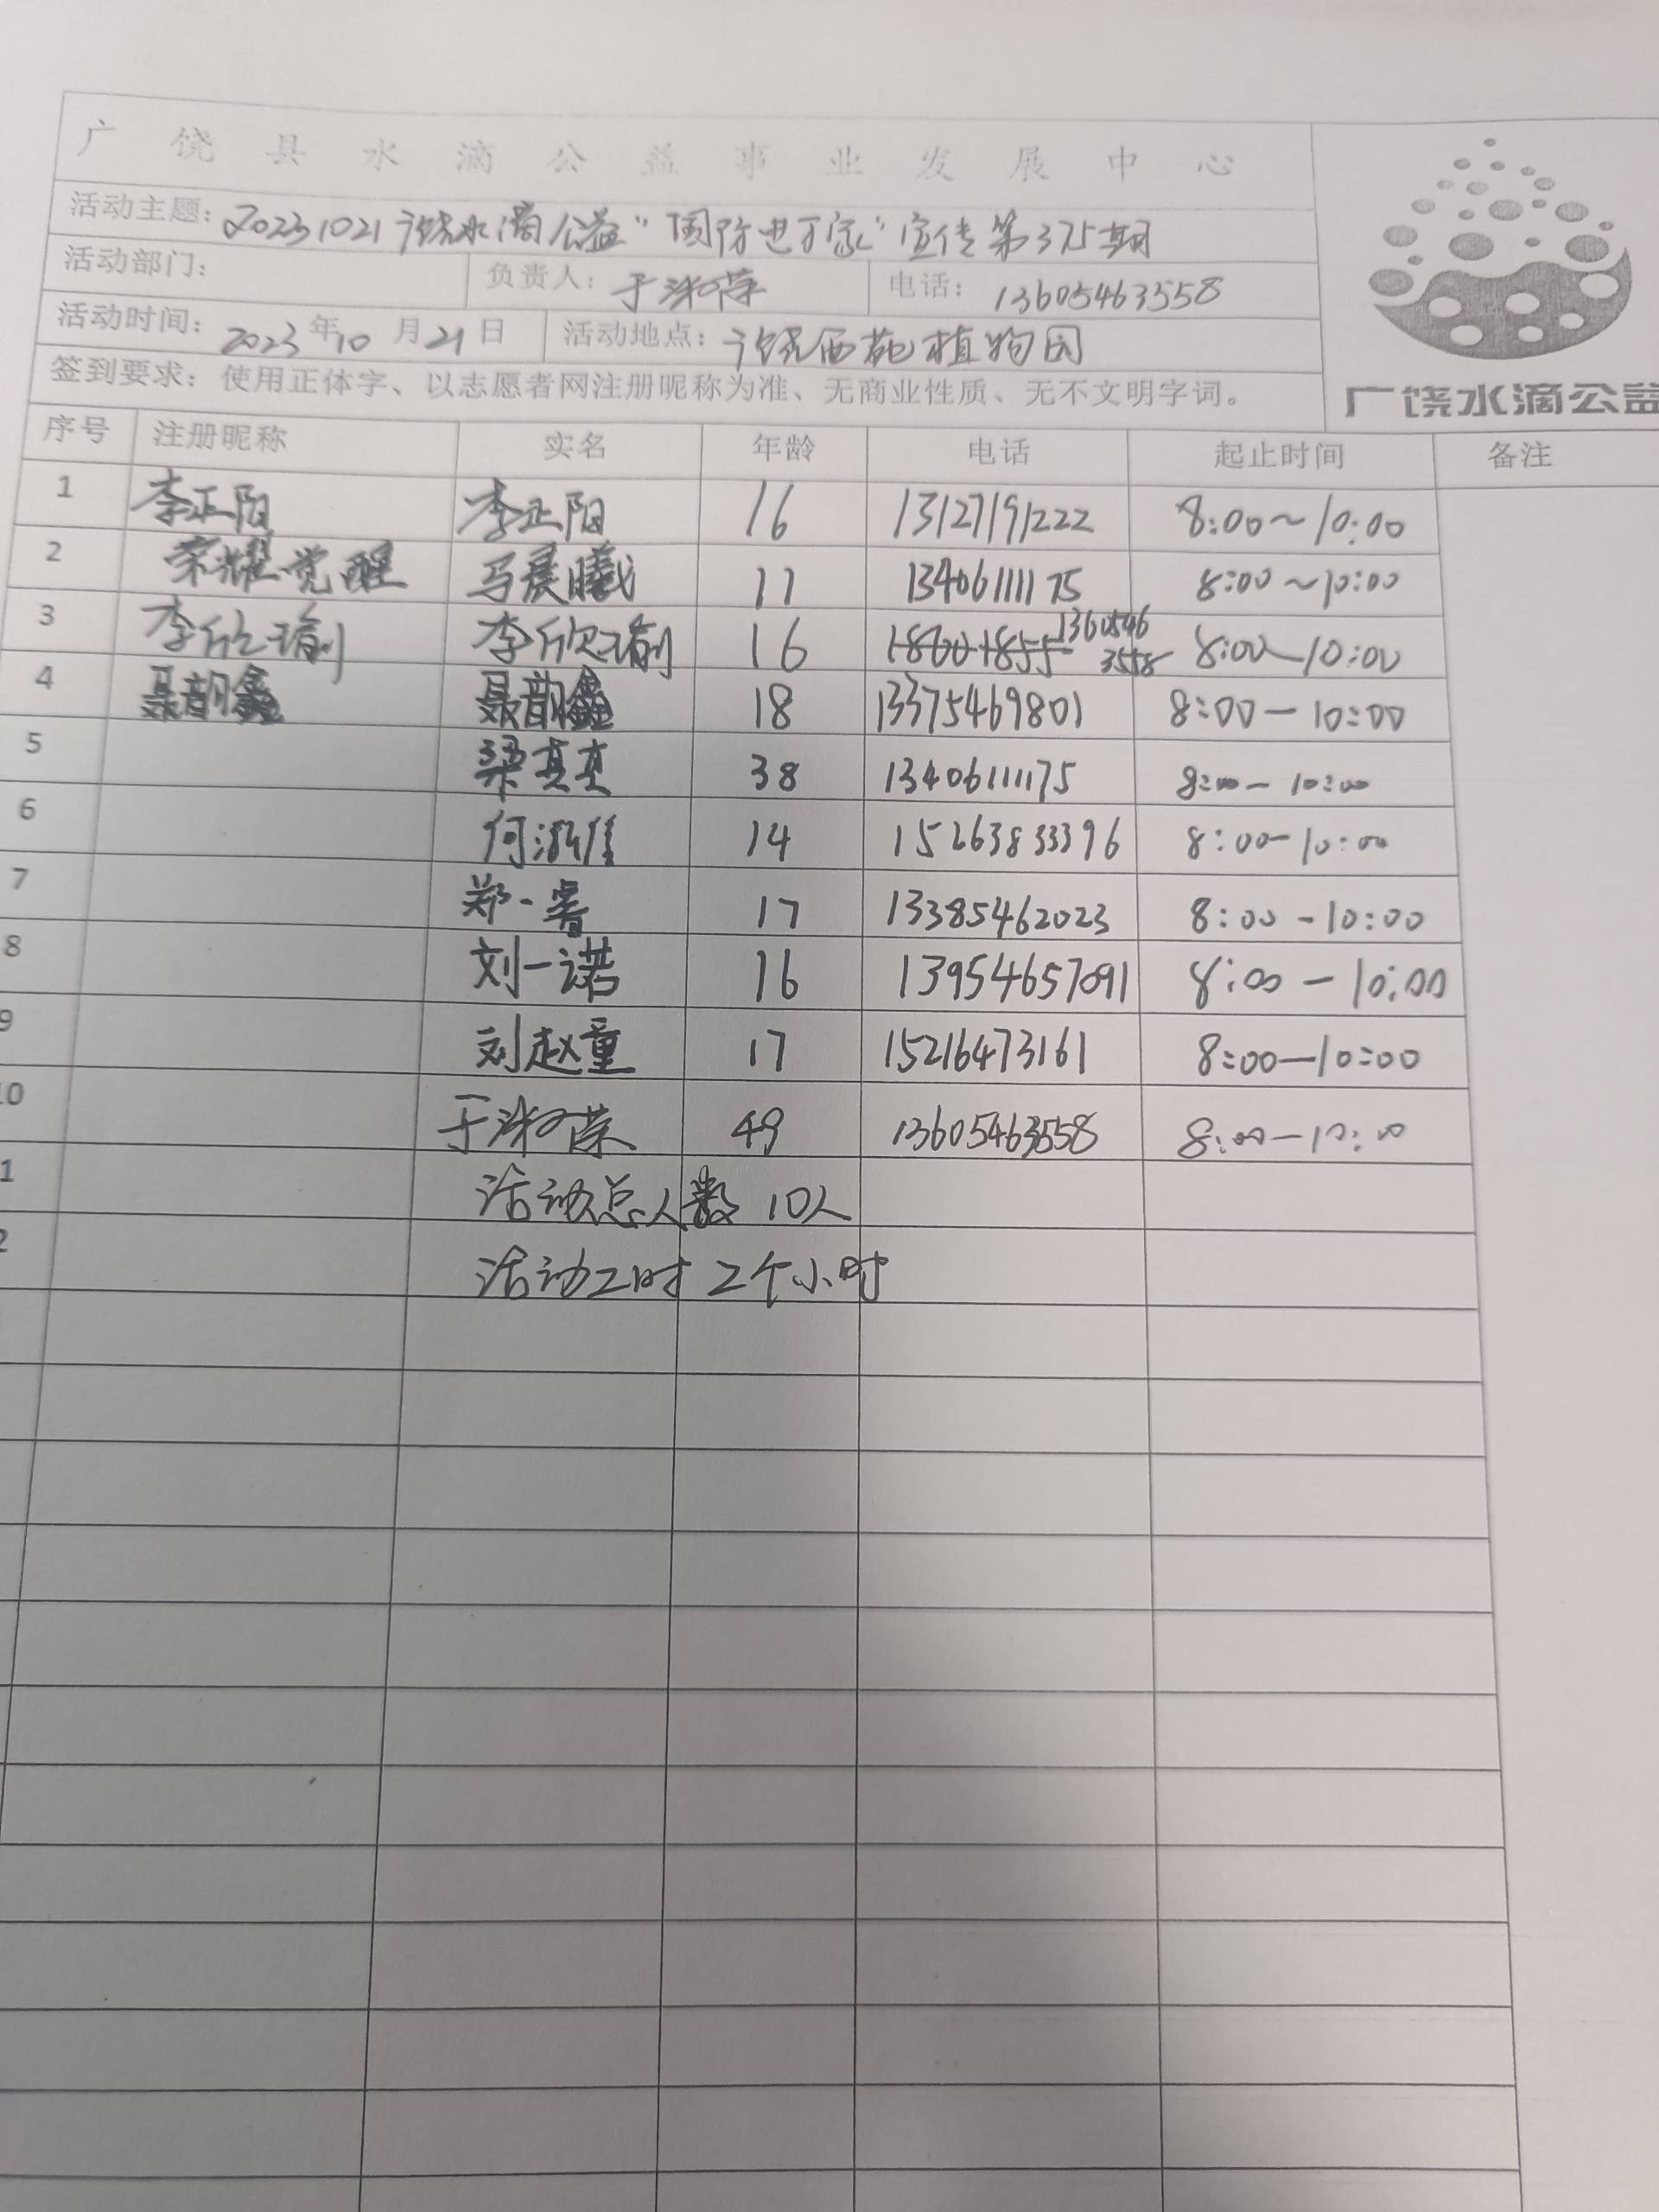 广饶县水滴公益事业发展中心
活动主题：20231021广饶水滴公益“国防进万家”宣传第375期
活动部门： 负责人：于淑萍 电话：13605463558
活动时间：2023年10月21日 活动地点：广饶西苑植物园
签到要求：使用正体字、以志愿者网注册昵称为准、无商业性质、无不文明字词。
广饶水滴公益
序号 注册昵称 实名 年龄 电话 起止时间 备注
1 李正阳 李正阳 16 13127191222 8:00~10:00
2 荣耀觉醒 马晨曦 11 13406111175 8:00~10:00
3 李欣瑜 李欣瑜 16 13605463558 8:00—10:00
4 聂韵鑫 聂韵鑫 18 13375469801 8:00—10:00
5 梁真真 38 13406111175 8:00—10:00
6 何 14 15263833396 8:00—10:00
7 郑一睿 17 13385462023 8:00-10:00
8 刘一诺 16 13954657091 8:00—10:00
9 刘赵童 17 15216473161 8:00—10:00
10 于淑萍 49 13605463558 8:00—10:00
1 活动总人数 10人
2 活动工时 2个小时